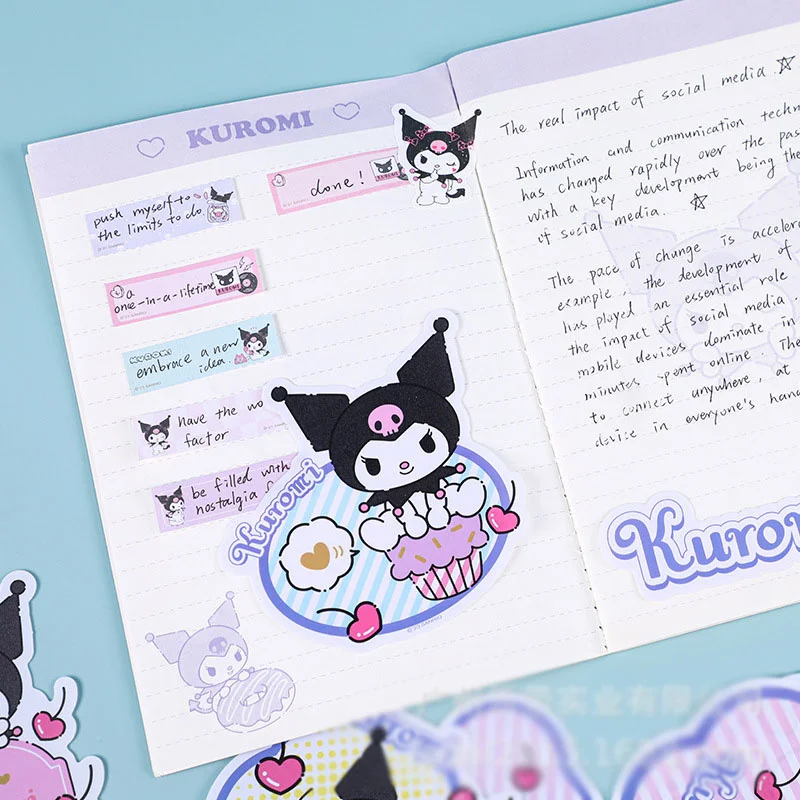 KUROMI
push myself to
the limits to do.
done!
a
once-in-a-lifetime
KUROMI
KUROMI
embrace a new
idea.
have the wo
factor
be filled with
nostalgia
Kuromi
The real impact of social media.
Information and communication techn
has changed rapidly over the pas
with a key development being the
of social media.
The pace of change is acceler
example, the development of
has played an essential role
the impact of social media.
mobile devices dominate in
minutes spent online. The
to connect anywhere, at
device in everyone's hand
Kuromi